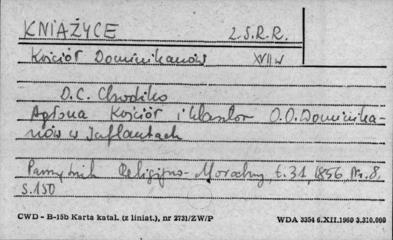 KNIAŻYCE Z.S.R.R.
Kościół Dominikanów XVII w
O.C. Chodźko
Agłona Kościół i klasztor O.O. Dominika-
nów w Inflantach
Pamiętnik Religijno-Moralny, t. 31, 1856, Nr. 8,
s. 150
CWD - B-15b Karta katal. (z liniat.), nr 2731/ZW/P WDA 3354 6.XII.1960 3.310.000